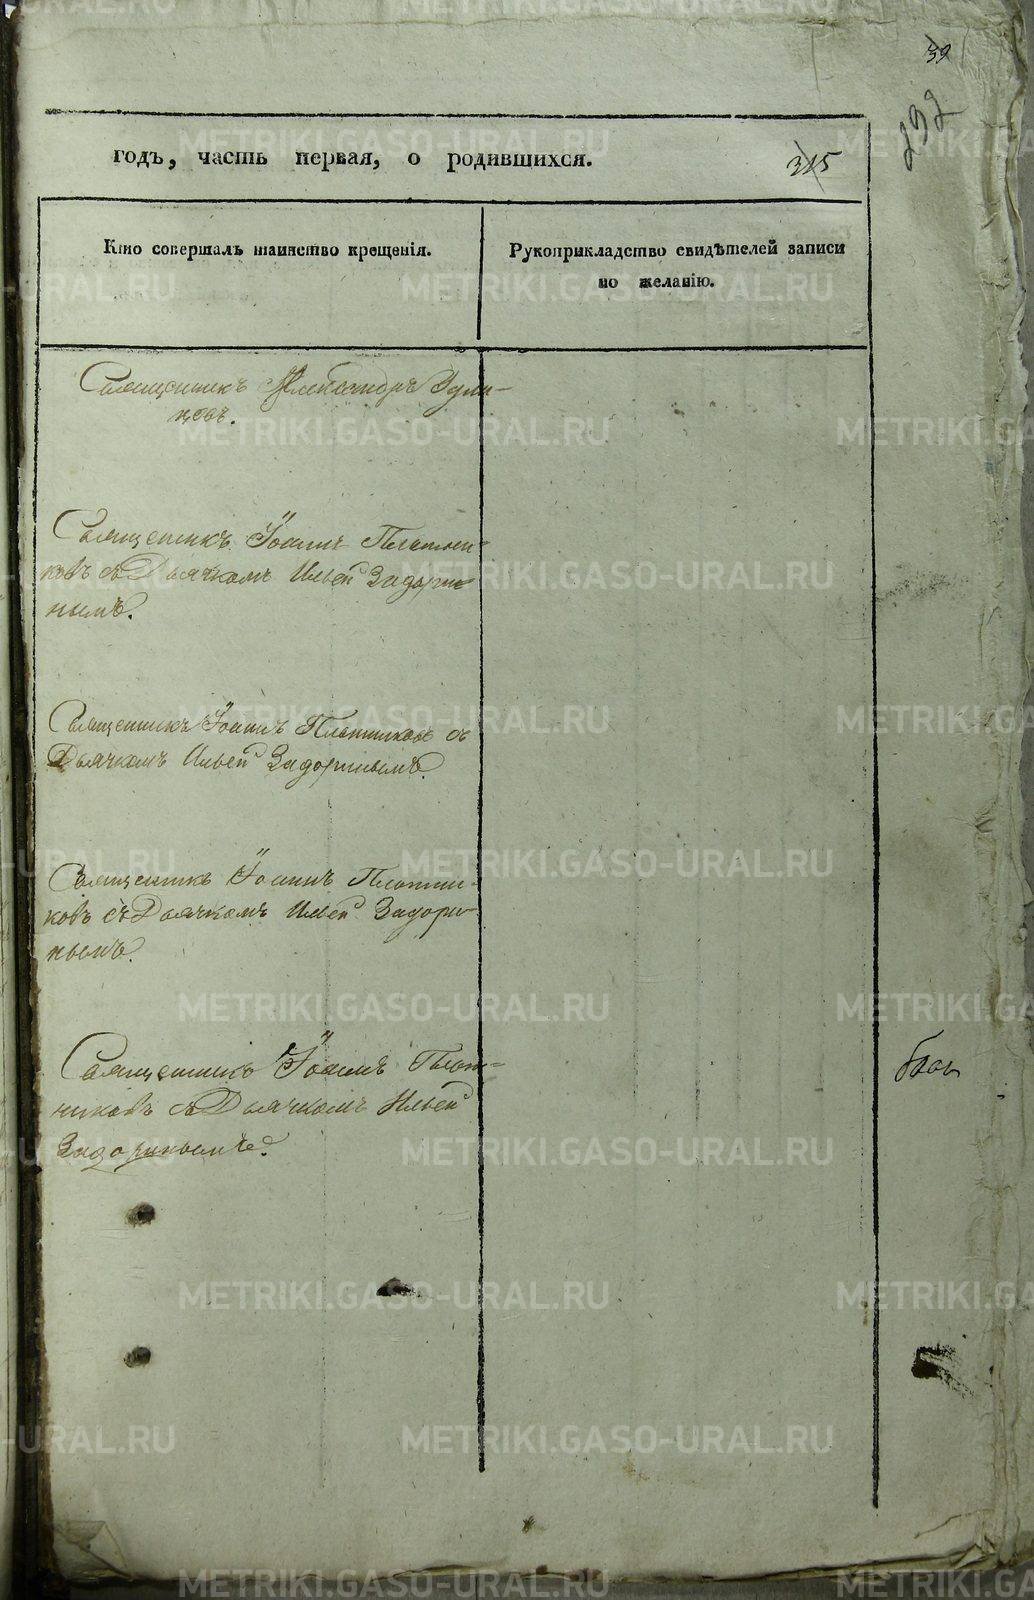 39
292
315
годъ, часть первая, о родившихся.
Кто совершалъ таинство крещенія.
Рукоприкладство свидѣтелей записи
по желанію.
Священникъ Александръ
цовъ.
Священникъ Іоаннъ Плотни-
ковъ съ Дьячкомъ Ильей Задори-
нымъ.
Священникъ Іоаннъ Плотниковъ съ
Дьячкомъ Ильей Задоринымъ.
Священникъ Іоаннъ Плотни-
ковъ съ Дьячкомъ Ильей Задори-
нымъ.
Священникъ Іоаннъ Плот-
никовъ съ Дьячкомъ Ильей
Задоринымъ.
METRIKI.GASO-URAL.RU